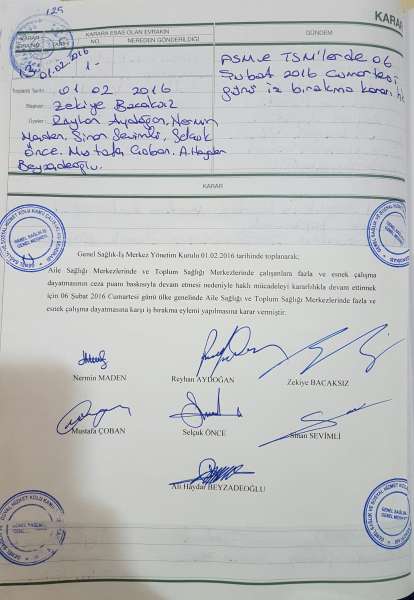 125
KARAR
KARARA ESAS OLAN EVRAKIN
GÜNDEM
KARAR SIRA NO
TARİHİ
NO
NEREDEN GÖNDERİLDİĞİ
01.02.2016
1-
ASM ve TSM'lerde 06
Şubat 2016 Cumartesi
günü iş bırakma kararı
Toplantı Tarihi: 01 02 2016
Başkan: Zekiye Bacaksız
Üyeler: Reyhan Aydoğan, Nermin
Maden, Sinan Sevimli, Selçuk
Önce. Mustafa Çoban. A. Haydar
Beyzadeoğlu.
KARAR
Genel Sağlık-İş Merkez Yönetim Kurulu 01.02.2016 tarihinde toplanarak;
Aile Sağlığı Merkezlerinde ve Toplum Sağlığı Merkezlerinde çalışanlara fazla ve esnek çalışma
dayatmasının ceza puanı baskısıyla devam etmesi nedeniyle haklı mücadeleyi kararlılıkla devam ettirmek
için 06 Şubat 2016 Cumartesi günü ülke genelinde Aile Sağlığı ve Toplum Sağlığı Merkezlerinde fazla ve
esnek çalışma dayatmasına karşı iş bırakma eylemi yapılmasına karar vermiştir.
Nermin MADEN
Reyhan AYDOĞAN
Zekiye BACAKSIZ
Mustafa ÇOBAN
Selçuk ÖNCE
Sinan SEVİMLİ
Ali Haydar BEYZADEOĞLU